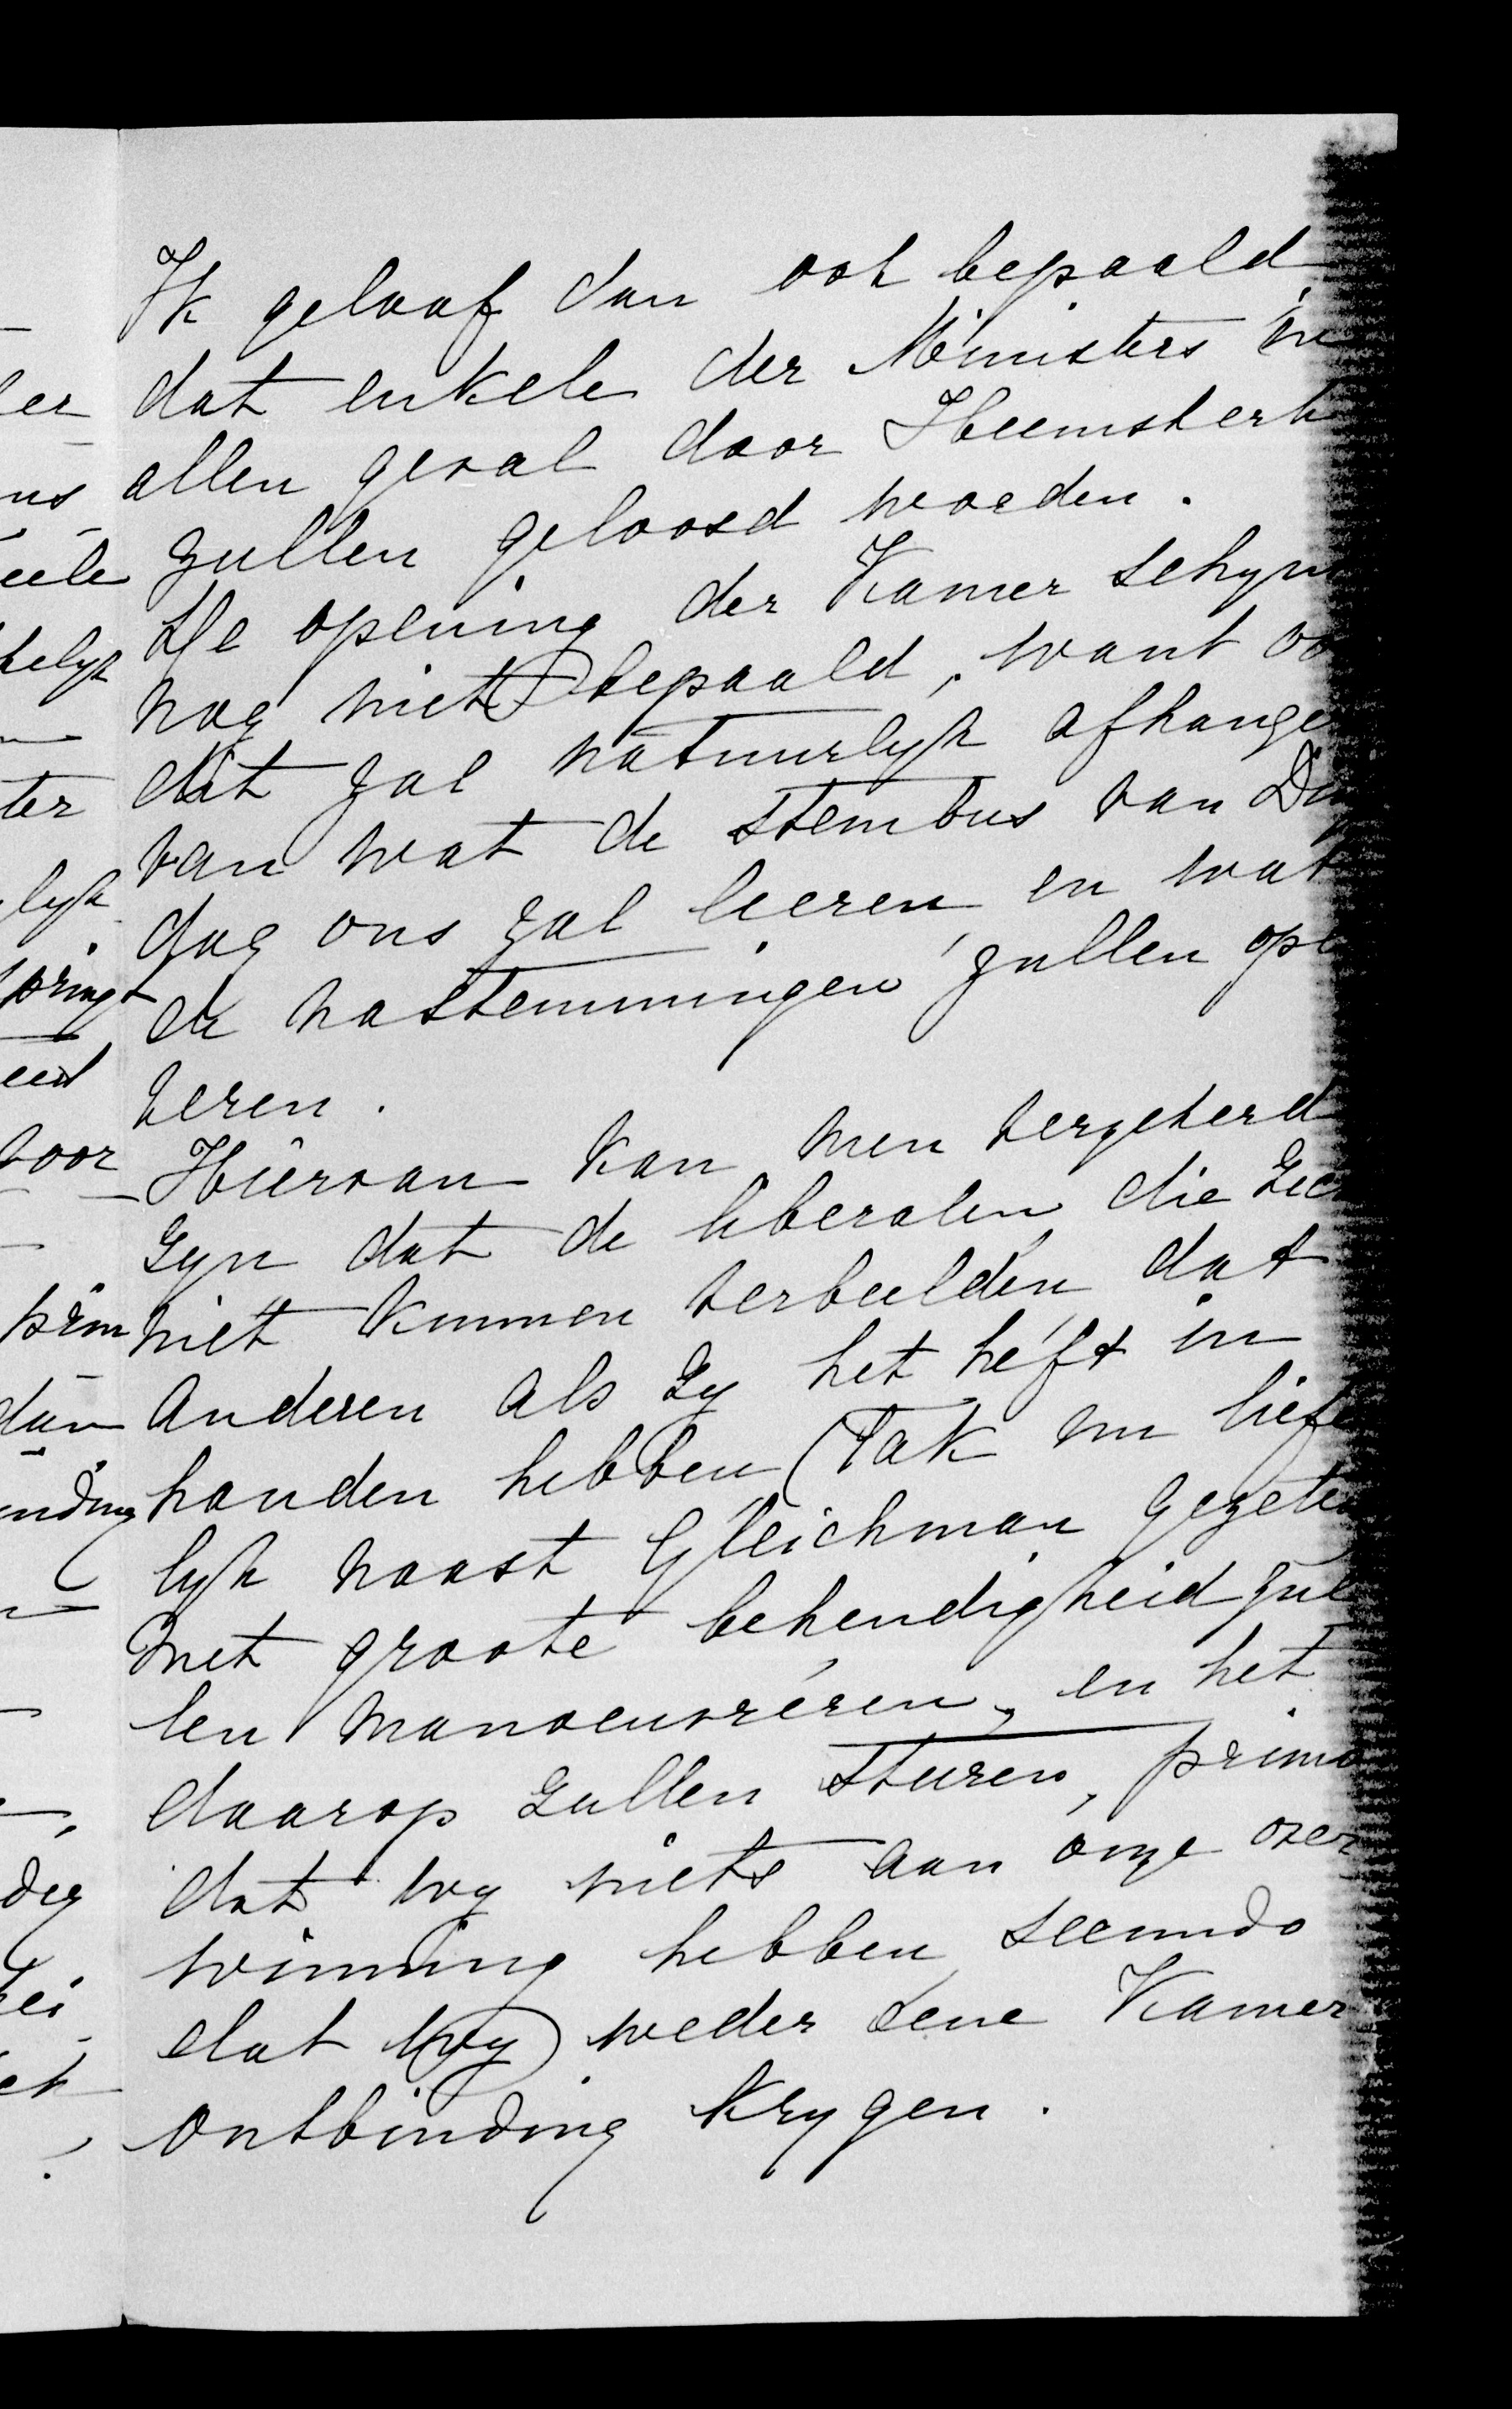 Ik geloof dan ook bepaald,
dat enkele der Ministers in
allen geval door Heemskerk
zullen geloosd worden.
De opening der Kamer schynt
nog niets bepaald, want oo
dit zal natuurlyk afhange
van wat de stembus van Di
dag ons zal leeren en wat
de nastemmingen zullen ople
veren.
Hiervan kan men verzekerd
zyn dat de liberalen die zich
niet kunnen verbeelden dat
anderen als zy het heft in
handen hebben (Tak nu liefe
lyk naast Gleichman gezeten
met groote behendigheid zul
len manoeuvréren, en het
daarop zullen sturen, primo
dat wy niets aan onze over
winning hebben secundo
dat wy weder eene Kamer
ontbinding krygen.